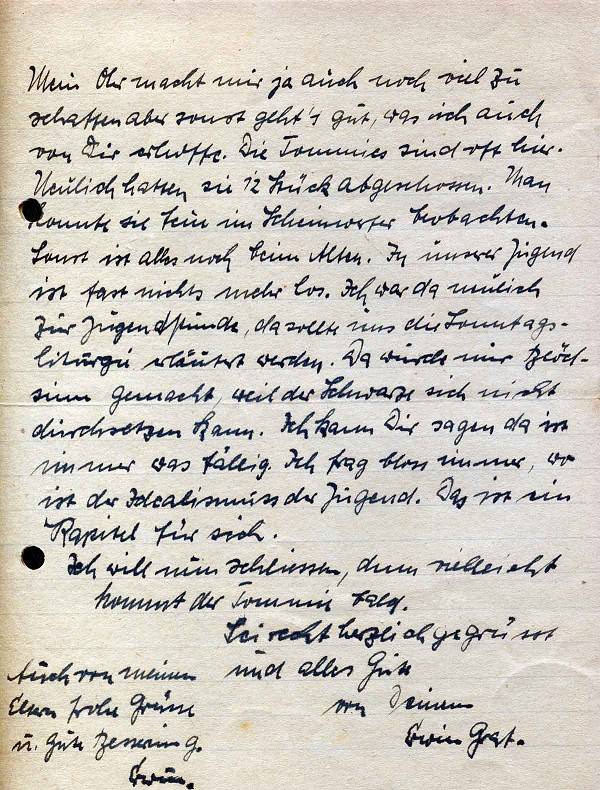 Mein Ohr macht mir ja auch noch viel zu
schaffen aber sonst geht's gut, was ich auch
von Dir erhoffe. Die Tommies sind oft hier.
Neulich hatten sie 12 Stück abgeschossen. Man
konnte sie fein im Scheinwerfer beobachten.
Sonst ist alles noch beim Alten. In unserer Jugend
ist fast nichts mehr los. Ich war da neulich
zur Jugendstunde, da sollte uns die Sonntags-
liturgie erläutert werden. Da wurde nur Blöd-
sinn gemacht, weil der Schwarze sich nicht
durchsetzen kann. Ich kann Dir sagen da ist
immer was fällig. Ich frag bloss immer, wo
ist der Idealismuss der Jugend. Das ist ein
Kapitel für sich.
Ich will nun schliessen, denn vielleicht
kommt der Tommie bald.
Sei recht herzlich gegrüsst
und alles Gute
von Deinem
Erwin Graf.
Auch von meinen
Eltern frohe Grüsse
u. gute Besserung.
Erwin.